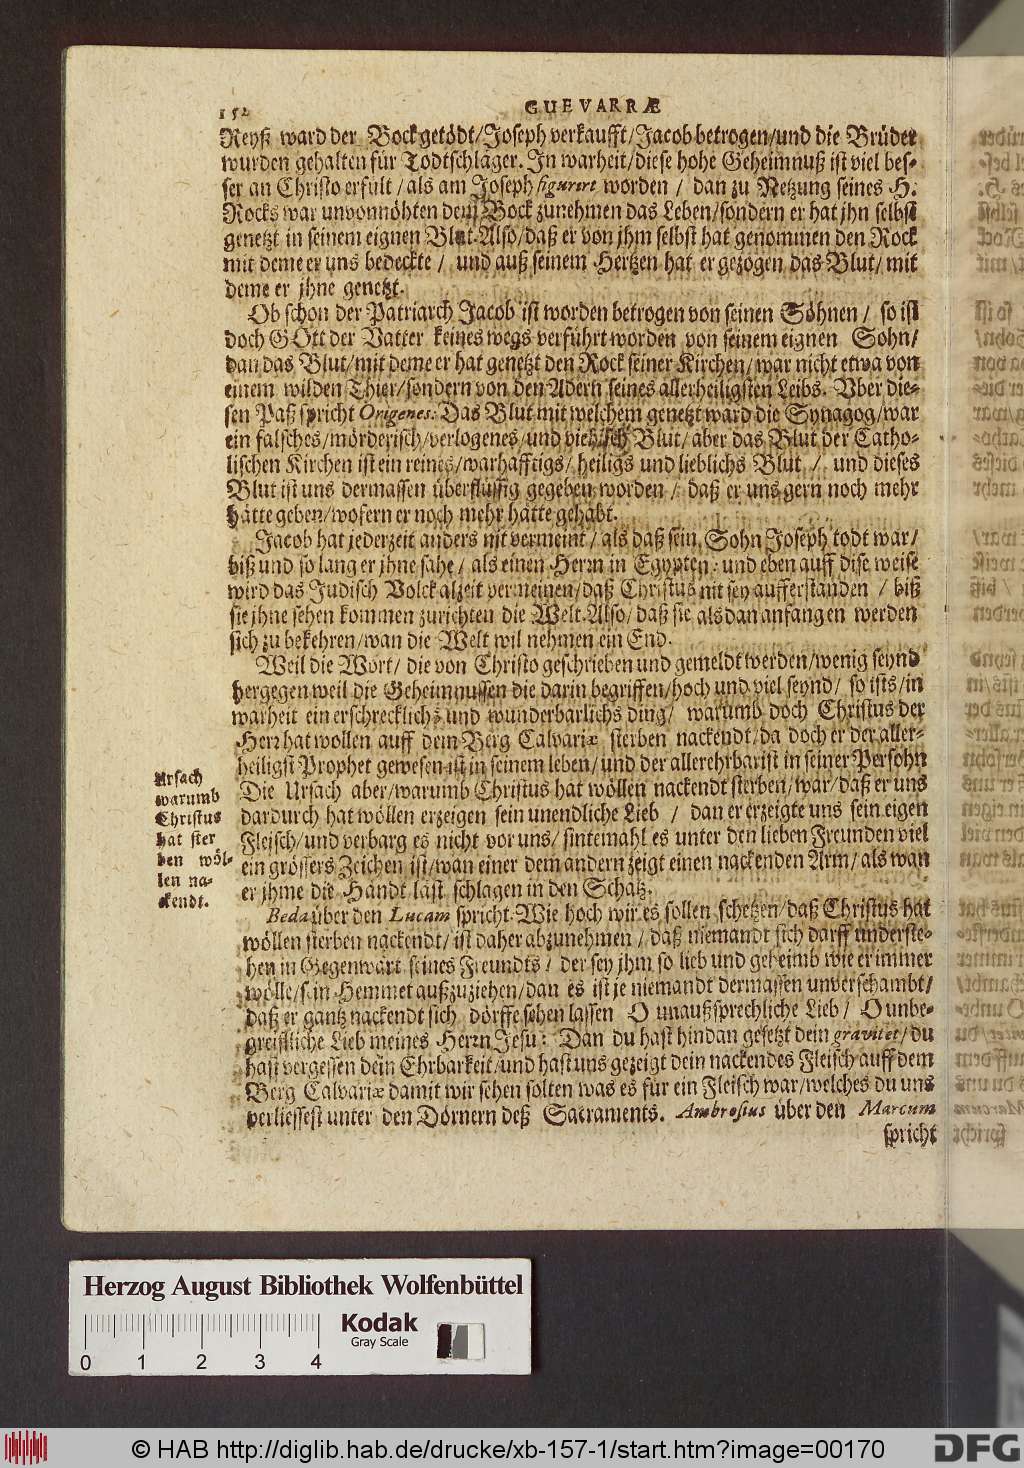 152
GUEVARRÆ
Reyß ward der Bock getödt/Joseph verkaufft/Jacob betrogen/und die Brüder
wurden gehalten für Todtschläger. In warheit/diese hohe Geheimnuß ist viel bes-
ser an Christo erfült/als am Joseph figurirt worden / dan zu Netzung seines H.
Rocks war unvonnöhten dem Bock zunehmen das Leben/sondern er hat jhn selbst
genetzt in seinem eignen Blut. Also/daß er von jhm selbst hat genommen den Rock
mit deme er uns bedeckte / und auß seinem Hertzen hat er gezogen das Blut/ mit
deme er jhne genetzt.
Ob schon der Patriarch Jacob ist worden betrogen von seinen Söhnen / so ist
doch GOtt der Vatter keines wegs verführt worden von seinem eignen Sohn/
dan das Blut/mit deme er hat genetzt den Rock seiner Kirchen/war nicht etwa von
einem wilden Thier/sondern von den Adern seines allerheiligsten Leibs. Vber die-
sen Paß spricht Origenes: Das Blut mit welchem genetzt ward die Synagog/war
ein falsches/mörderisch/verlogenes/und viehisch Blut/aber das Blut der Catho-
lischen Kirchen ist ein reines/warhafftigs/heiligs und lieblichs Blut / und dieses
Blut ist uns dermassen überflüssig gegeben worden / daß er uns gern noch mehr
hätte geben/wofern er noch mehr hätte gehabt.
Jacob hat jederzeit anders nit vermeint/als daß sein Sohn Joseph todt war/
biß und so lang er jhne sahe/als einen Herrn in Egypten: und eben auff dise weise
wird das Jüdisch Volck alzeit vermeinen/daß Christus nit sey aufferstanden / biß
sie jhne sehen kommen zurichten die Welt. Also/daß sie alsdan anfangen werden
sich zu bekehren/wan die Welt wil nehmen ein End.
Weil die Wort/ die von Christo geschrieben und gemeldt werden/wenig seynd
hergegen weil die Geheimnussen die darin begriffen/hoch und viel seynd/ so ists/in
warheit ein erschrecklichs und wunderbarlichs ding/ warumb doch Christus der
Herr hat wollen auff dem Berg Calvariæ sterben nackendt/da doch er der aller-
heiligst Prophet gewesen ist in seinem leben/und der allerehrbarist in seiner Persohn
Die Ursach aber/warumb Christus hat wöllen nackendt sterben/war/daß er uns
dardurch hat wöllen erzeigen sein unendliche Lieb / dan er erzeigte uns sein eigen
Fleisch/und verbarg es nicht vor uns/sintemahl es unter den lieben Freunden viel
ein grössers Zeichen ist/wan einer dem andern zeigt einen nackenden Arm/als wan
er jhme die Händt läst schlagen in den Schatz.
Ursach
warumb
Christus
hat ster
ben wöl-
len na-
ckendt.
Beda über den Lucam spricht. Wie hoch wir es sollen schetzen/daß Christus hat
wöllen sterben nackendt/ist daher abzunehmen / daß niemandt sich darff unterste-
hen in Gegenwärt seines Freundts / der sey jhm so lieb und geheimb wie er immer
wölle/sein Hemmet außzuziehen/dan es ist je niemandt dermassen unverschambt/
daß er gantz nackendt sich dörffe sehen lassen O unaußsprechliche Lieb / O unbe-
greiffliche Lieb meines Herrn Jesu: Dan du hast hindan gesetzt dein gravitet/du
hast vergessen dein Ehrbarkeit/und hast uns gezeigt dein nackendes Fleisch auff dem
Berg Calvariæ damit wir sehen solten was es für ein Fleisch war/welches du uns
verliessest unter den Dörnern deß Sacraments. Ambrosius über den Marcum
spricht
Herzog August Bibliothek Wolfenbüttel
Kodak
Gray Scale
0 1 2 3 4
© HAB http://diglib.hab.de/drucke/xb-157-1/start.htm?image=00170
DFG